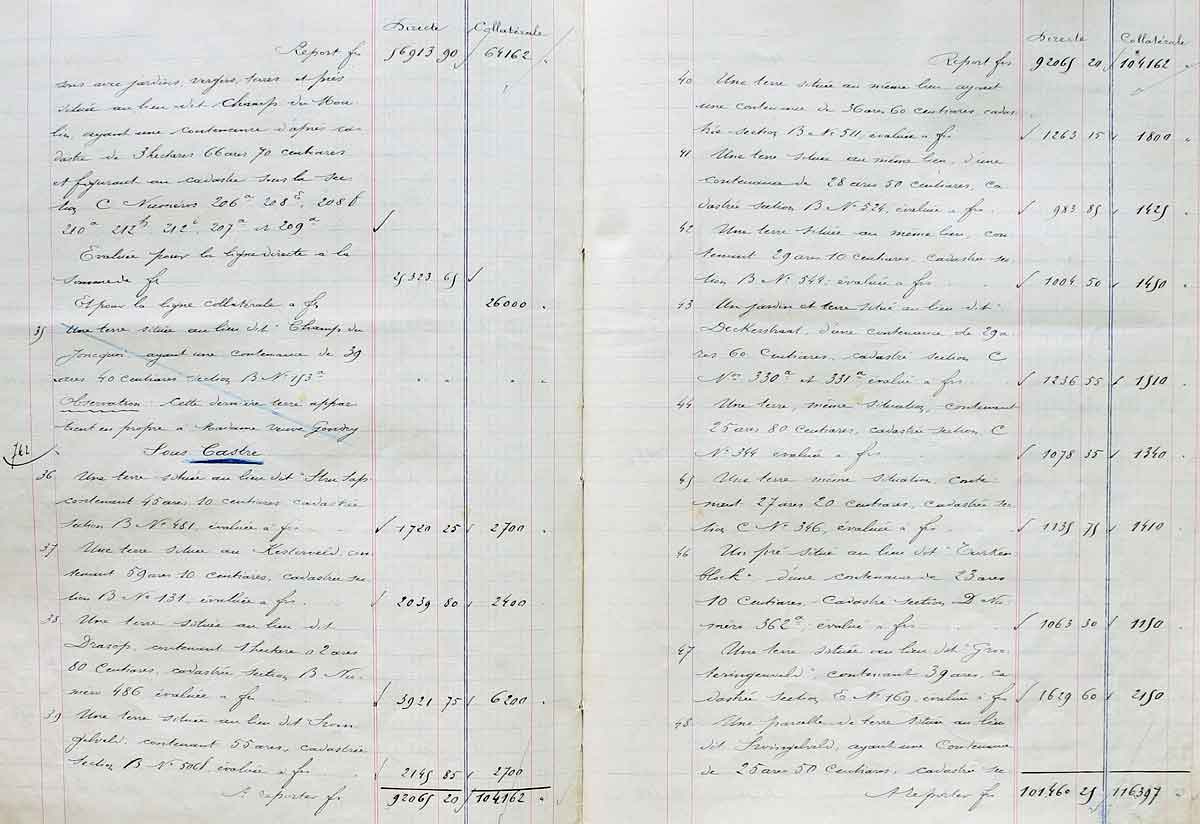 Directe Collatérale
Report frs 56913 90 64162
sous avec jardins, vergers, terres et prés
située au lieu dit Champ du Mou-
lin, ayant une contenance d'après ca-
dastre de 3 hectares 66 ares 70 centiares
et figurant au cadastre sous la sec-
tion C Numéros 206a 208c, 208b
210a 212b, 212c, 207a et 209a
Evaluée pour la ligne directe à la
somme de frs 25323 65
Et pour la ligne collatérale à frs 26000
35 Une terre située au lieu dit "Champ du
Joncquoi" ayant une contenance de 39
ares 40 centiares section B No 153a
Observation: Cette dernière terre appar
tient en propre à Madame veuve Gondry
762
Sous Castre
36 Une terre située au lieu dit
contenant 45 ares 10 centiares, cadastrée
section B No 481, évaluée à frs 1720 25 2700
37 Une terre située au Kesterveld, con
tenant 59 ares 10 centiares, cadastrée sec-
tion B No 131, évaluée à frs 2039 80 2400
38 Une terre située au lieu dit
Drasop, contenant 1 hectare 2 ares
80 centiares, cadastrée section B Nu-
méro 486 évaluée à frs 3921 75 6200
39 Une terre située au lieu dit
contenant 55 ares, cadastrée
section B No 506b, évaluée à frs 2145 85 2700
A reporter frs 92065 20 104162
Directe Collatérale
Report frs 92065 20 104162
40 Une terre située au même lieu ayant
une contenance de 36 ares 60 centiares cadas
trée section B No 511, évaluée à frs 1263 15 1800
41 Une terre située au même lieu, d'une
contenance de 28 ares 50 centiares, ca
dastrée section B No 524, évaluée à frs 983 85 1425
42 Une terre située au même lieu, con-
tenant 29 ares 10 centiares, cadastrée sec-
tion B No 544, évaluée à frs 1004 50 1450
43 Un jardin et terre situé au lieu dit
Deckerstraat, d'une contenance de 29 a-
res 60 centiares, cadastré section C
Nos 330a et 331a, évaluée à frs 1236 55 1510
44 Une terre, même situation, contenant
25 ares 80 centiares, cadastrée section C
No 344 évaluée à frs 1078 35 1340
45 Une terre même situation, conte-
nant 27 ares 20 centiares, cadastrée sec-
tion C No 346, évaluée à frs 1135 75 1410
46 Un pré situé au lieu dit "Turken
block" d'une contenance de 23 ares
10 centiares cadastré section D Nu-
méro 362a, évalué à frs 1063 30 1150
47 Une terre située au lieu dit "Groe-
teringenveld", contenant 39 ares, ca
dastrée section E No 169, évaluée à frs 1629 60 2150
48 Une parcelle de terre située au lieu
dit Swingelveld, ayant une contenance
de 25 ares 50 centiares, cadastrée sec-
A reporter frs 101.460 25 116397